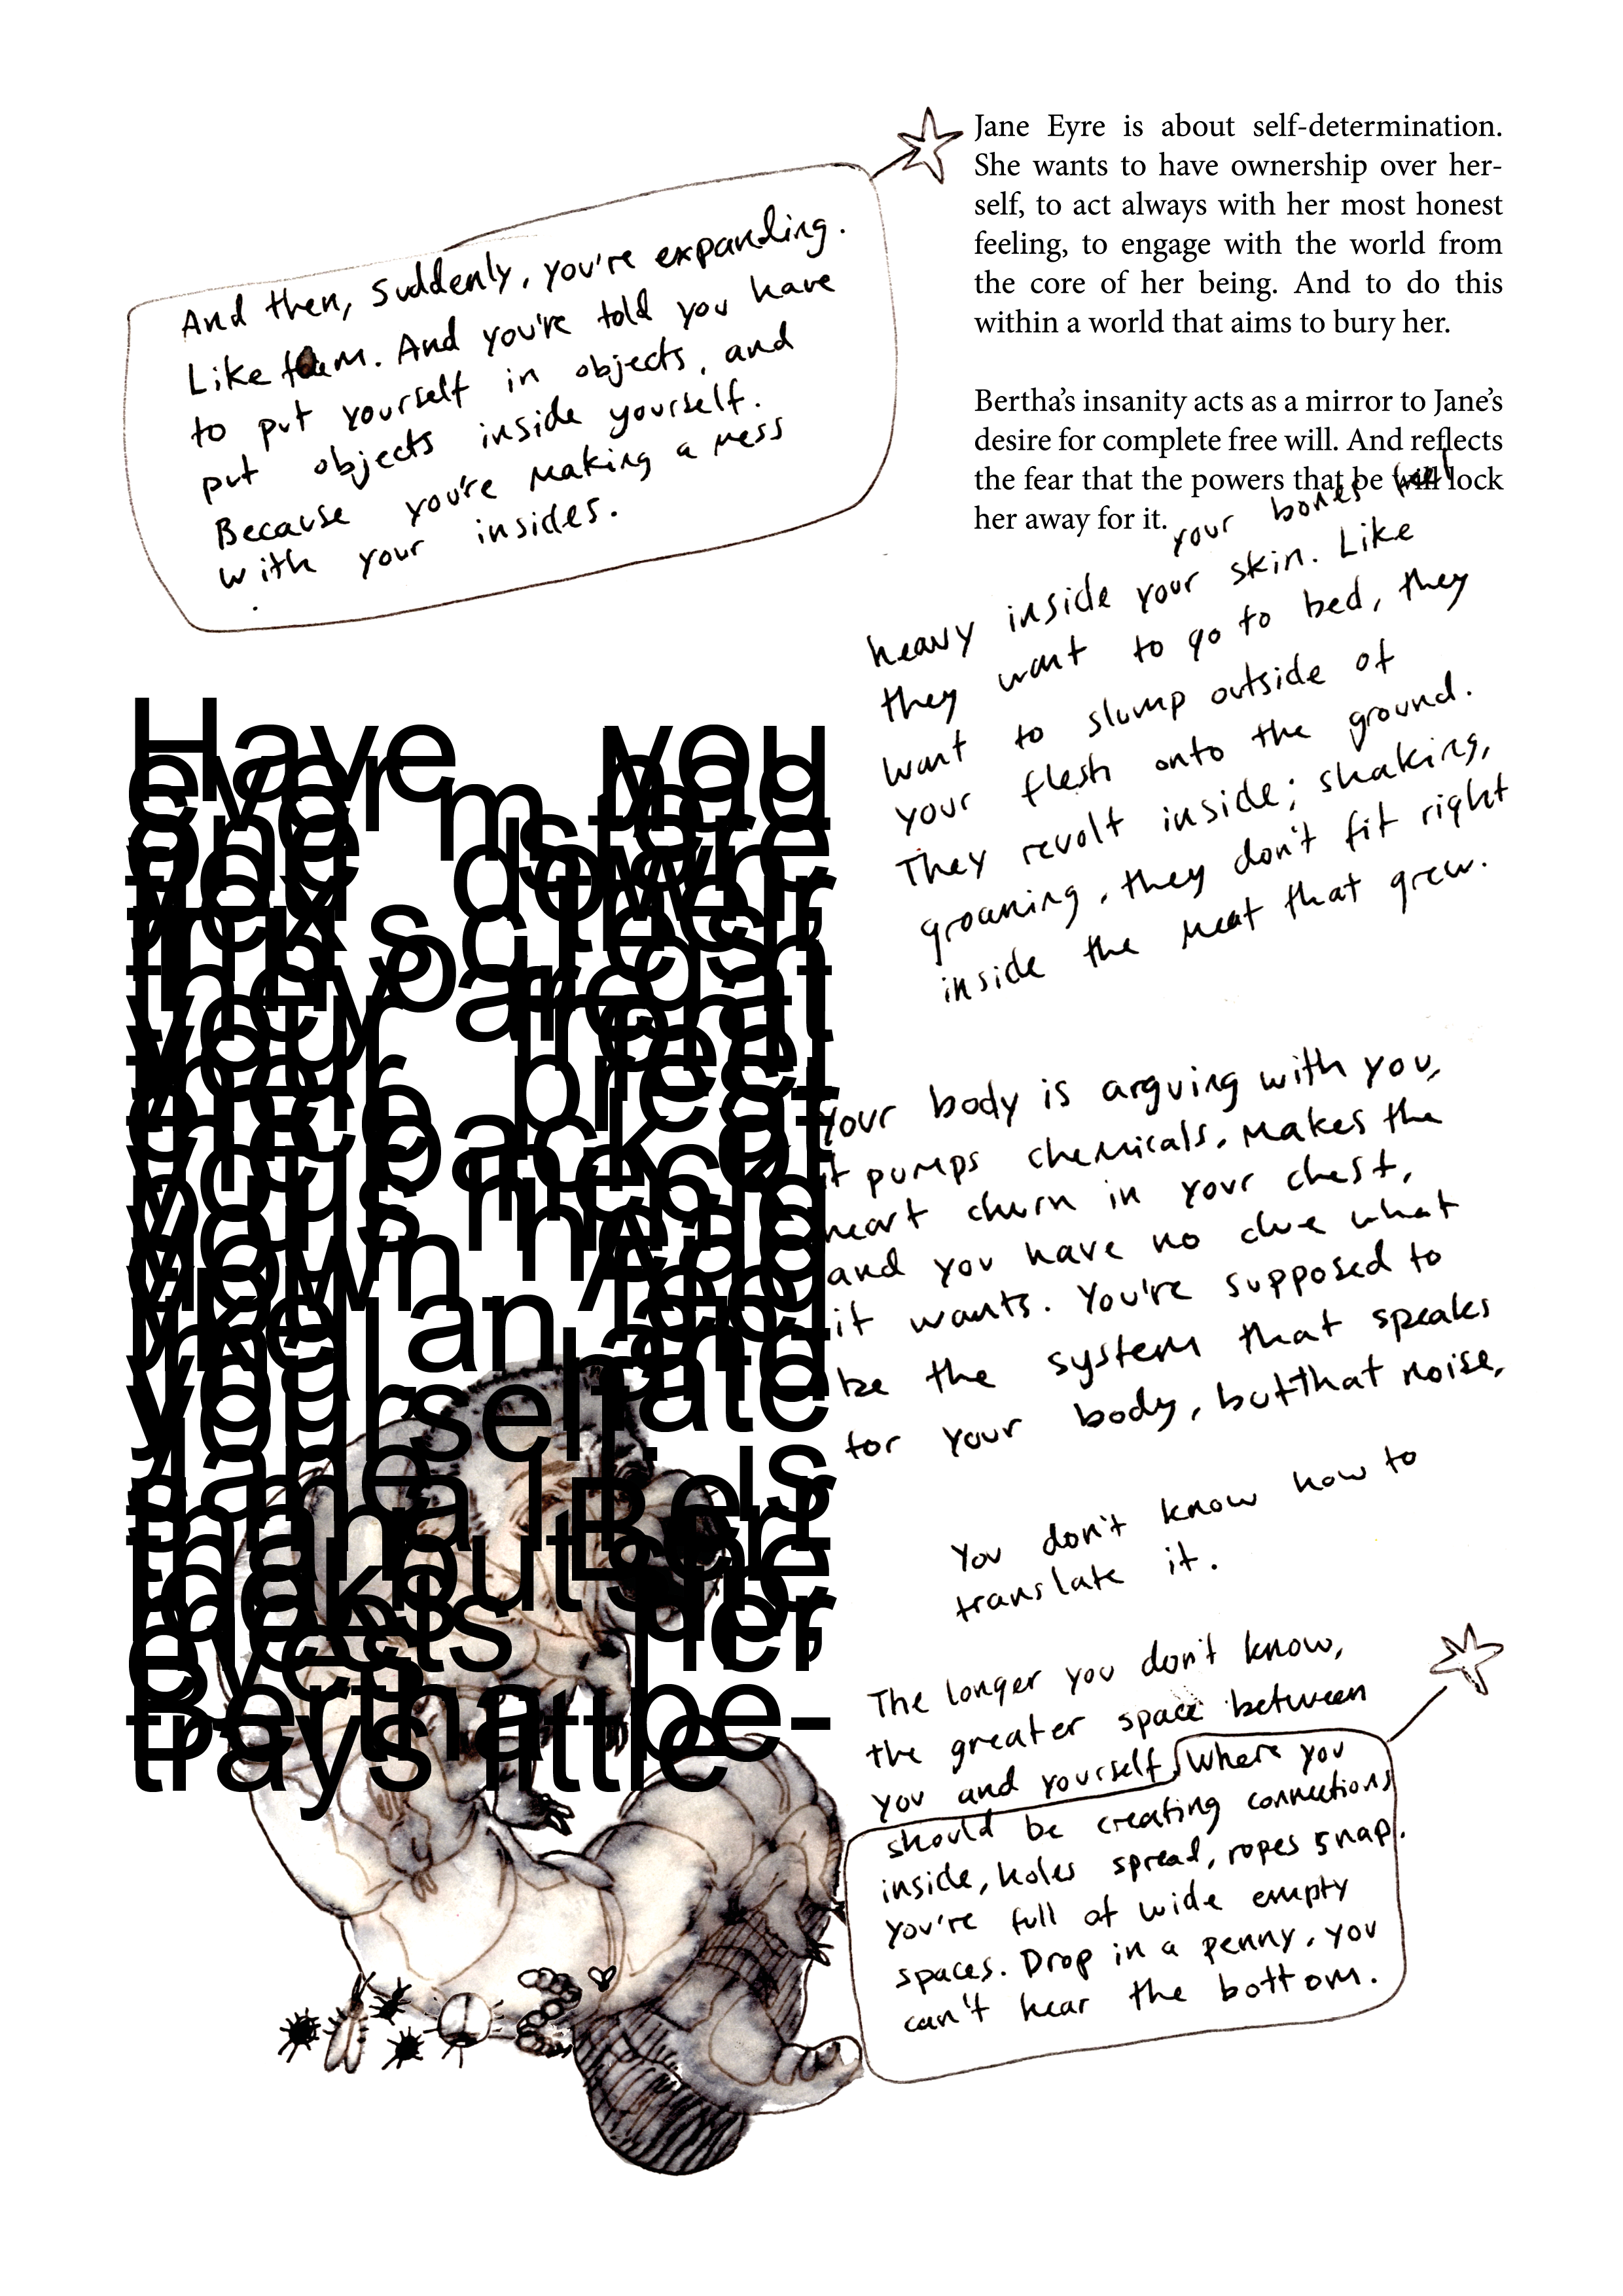 And then, suddenly, you're expanding.
Like foam. And you're told you have
to put yourself in objects, and
put objects inside yourself.
Because you're making a mess
with your insides.
Have you
ever
one stare
you down
they are
your
back of
your neck
down And
like an
you hate
yourself
Jane
than
but she
looks
meets her
eyes
Bertha be-
trays little
Jane Eyre is about self-determination.
She wants to have ownership over her-
self, to act always with her most honest
feeling, to engage with the world from
the core of her being. And to do this
within a world that aims to bury her.
Bertha's insanity acts as a mirror to Jane's
desire for complete free will. And reflects
the fear that the powers that be will lock
her away for it.
your bones feel
heavy inside your skin. Like
they want to go to bed, they
want to slump outside of
your flesh onto the ground.
They revolt inside; shaking,
groaning, they don't fit right
inside the meat that grew.
Your body is arguing with you,
it pumps chemicals. Makes the
heart churn in your chest,
and you have no clue what
it wants. You're supposed to
be the system that speaks
for your body, but that noise,
You don't know how to
translate it.
The longer you don't know,
the greater space between
you and yourself Where you
should be creating connections
inside, holes spread, ropes snap.
you're full of wide empty
spaces. Drop in a penny, you
can't hear the bottom.